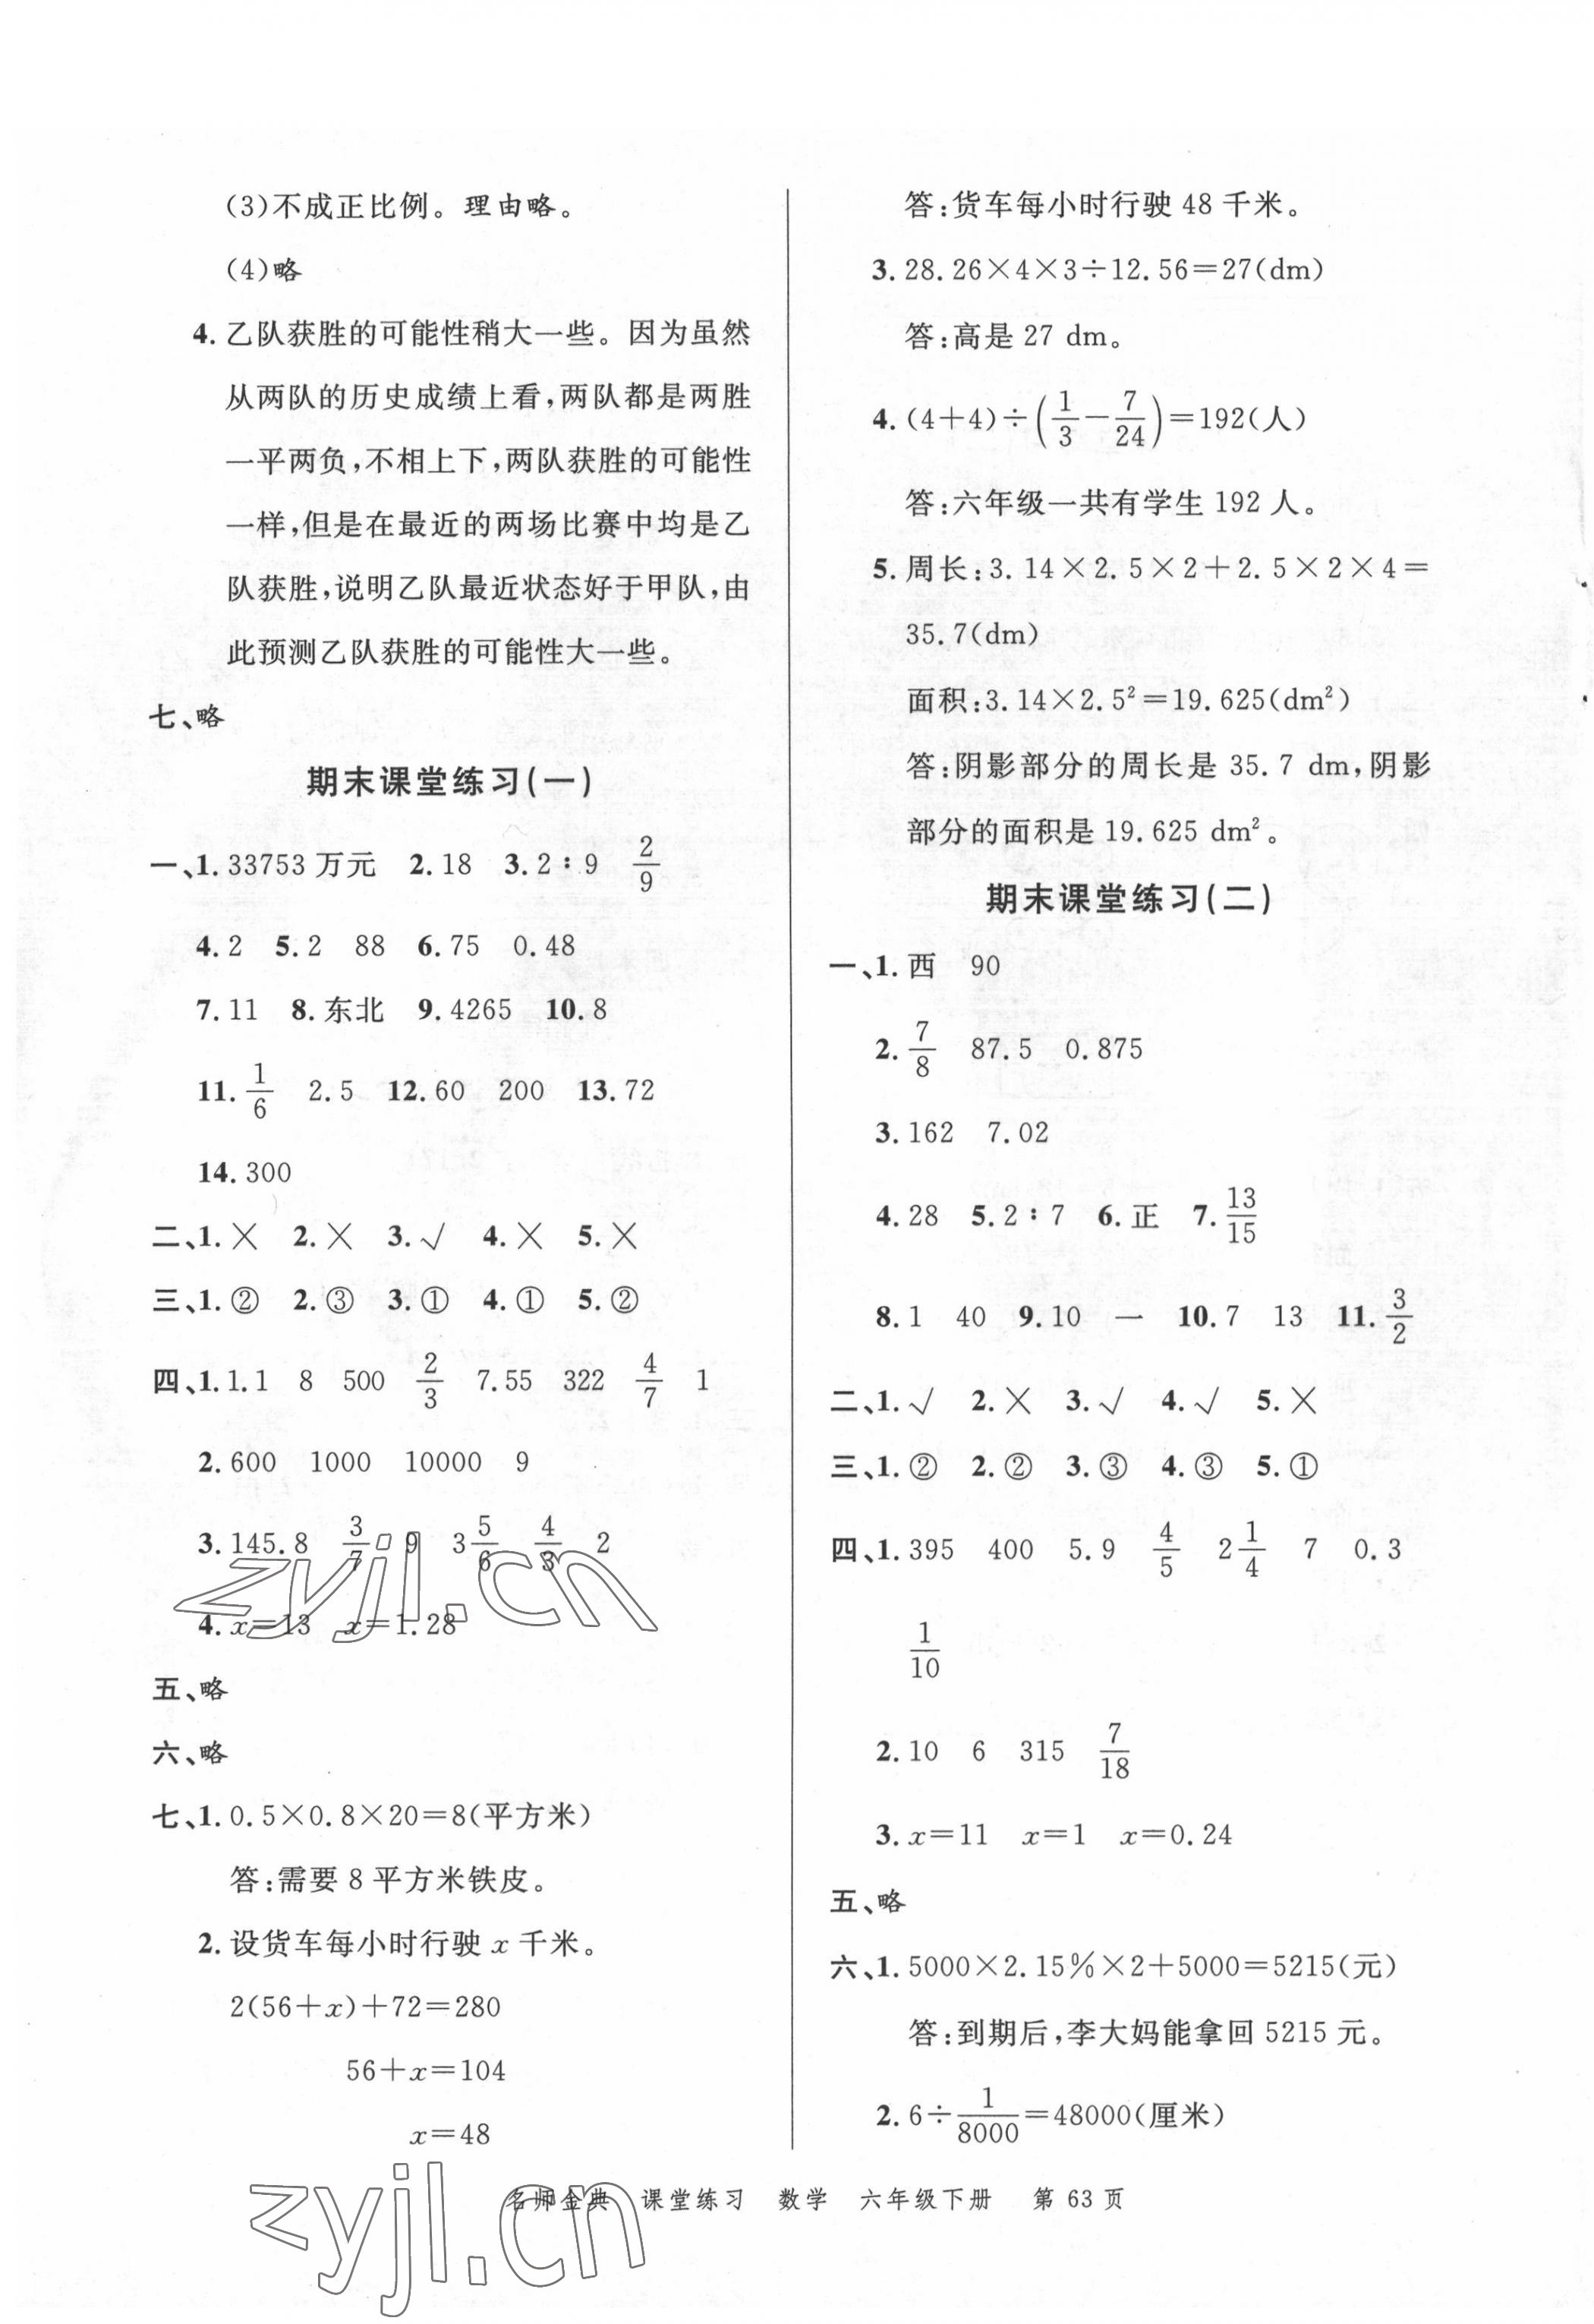 (3)不成正比例。理由略。
(4)略
4. 乙队获胜的可能性稍大一些。因为虽然
从两队的历史成绩上看,两队都是两胜
一平两负,不相上下,两队获胜的可能性
一样,但是在最近的两场比赛中均是乙
队获胜,说明乙队最近状态好于甲队,由
此预测乙队获胜的可能性大一些。
七、略
期末课堂练习(一)
一、1. 33753 万元 2. 18 3. 2∶9 2/9
4. 2 5. 2 88 6. 75 0.48
7. 11 8. 东北 9. 4265 10. 8
11. 1/6 2.5 12. 60 200 13. 72
14. 300
二、1. × 2. × 3. √ 4. × 5. ×
三、1. ② 2. ③ 3. ① 4. ① 5. ②
四、1. 1.1 8 500 2/3 7.55 322 4/7 1
2. 600 1000 10000 9
3. 145.8 3/7 9 3 5/6 4/3 2
4. x=13 x=1.28
五、略
六、略
七、1. 0.5×0.8×20=8(平方米)
答:需要 8 平方米铁皮。
2. 设货车每小时行驶 x 千米。
2(56+x)+72=280
56+x=104
x=48
答:货车每小时行驶 48 千米。
3. 28.26×4×3÷12.56=27(dm)
答:高是 27 dm。
4. (4+4)÷(1/3-7/24)=192(人)
答:六年级一共有学生 192 人。
5. 周长:3.14×2.5×2+2.5×2×4=
35.7(dm)
面积:3.14×2.5²=19.625(dm²)
答:阴影部分的周长是 35.7 dm,阴影
部分的面积是 19.625 dm²。
期末课堂练习(二)
一、1. 西 90
2. 7/8 87.5 0.875
3. 162 7.02
4. 28 5. 2∶7 6. 正 7. 13/15
8. 1 40 9. 10 一 10. 7 13 11. 3/2
二、1. √ 2. × 3. √ 4. √ 5. ×
三、1. ② 2. ② 3. ③ 4. ③ 5. ①
四、1. 395 400 5.9 4/5 2 1/4 7 0.3
1/10
2. 10 6 315 7/18
3. x=11 x=1 x=0.24
五、略
六、1. 5000×2.15%×2+5000=5215(元)
答:到期后,李大妈能拿回 5215 元。
2. 6÷1/8000=48000(厘米)
名师金典 课堂练习 数学 六年级下册 第 63 页
zyjl.cn
zyjl.cn